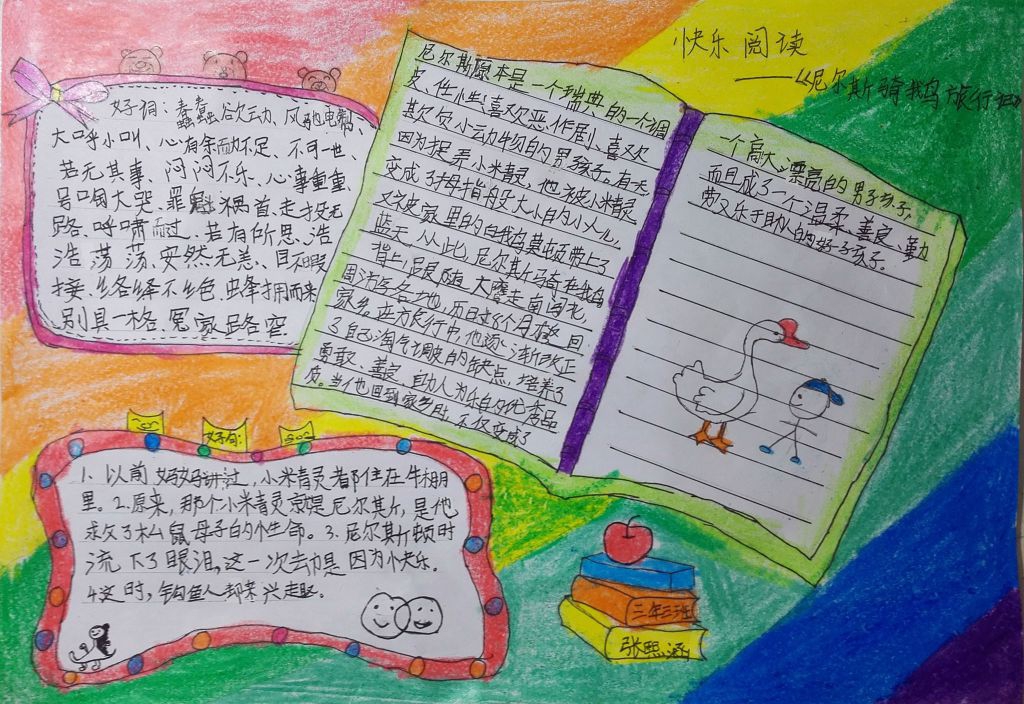 快乐阅读
——《尼尔斯骑鹅旅行记》
好词：蠢蠢欲动、风驰电掣、
大呼小叫、心有余而力不足、不可一世、
若无其事、闷闷不乐、心事重重、
号啕大哭、罪魁祸首、走投无
路、呼啸而过、若有所思、浩
浩荡荡、安然无恙、目不暇
接、络绎不绝、蜂拥而来
别具一格、冤家路窄
尼尔斯原本是一个瑞典的一个调
皮、性心生喜欢恶作剧、喜欢
欺负小动物的男孩子。有天
因为捉弄小米青灵，他被小米青灵
变成了拇指般大小的小人儿。
又被家里的白鹅莫顿带上了
蓝天，从此，尼尔斯骑在鹅
背上，跟随大雁走南闯北，
周游各地，历时8个月才回
家乡。在旅行中，他逐渐改正
了自己淘气调皮的缺点，培养了
勇敢、善良、助人为乐的优秀品
质。当他回到家乡时，不仅变成了
一个高大、漂亮的男孩子，
而且成了一个温柔、善良、勤
劳又乐于助人的好孩子。
好句：
1. 以前妈妈讲过，小米青灵都住在牛棚
里。2.原来，那个小米青灵就是尼尔其斤，是他
救了松鼠母子的性命。3.尼尔斯顿时
流下了眼泪，这一次却是因为快乐。
4这时，钩鱼人却来兴趣。
三年三班
张熙涵